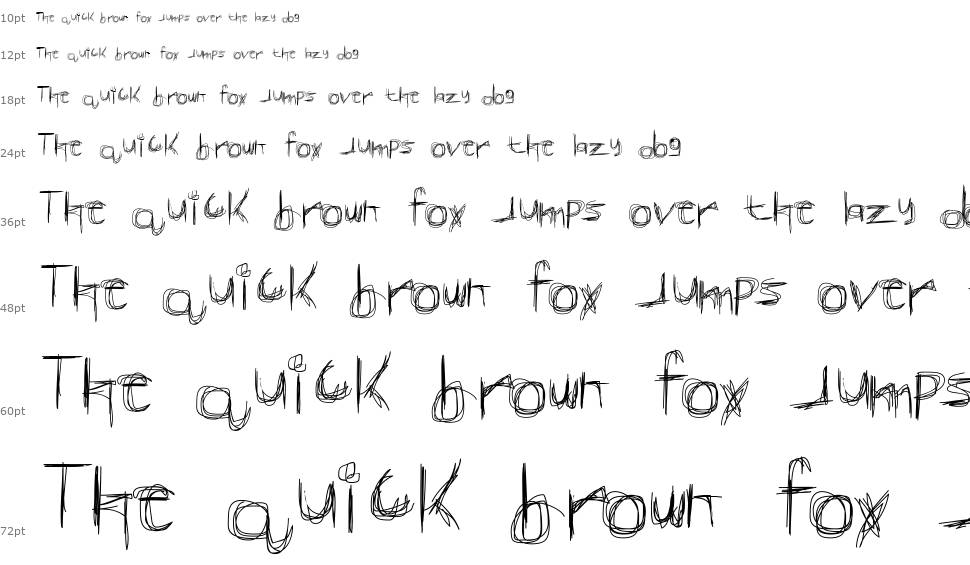 10pt The quick brown fox jumps over the lazy dog
12pt The quick brown fox jumps over the lazy dog
18pt The quick brown fox jumps over the lazy dog
24pt The quick brown fox jumps over the lazy dog
36pt The quick brown fox jumps over the lazy do
48pt The quick brown fox jumps over
60pt The quick brown fox jumps
72pt The quick brown fox